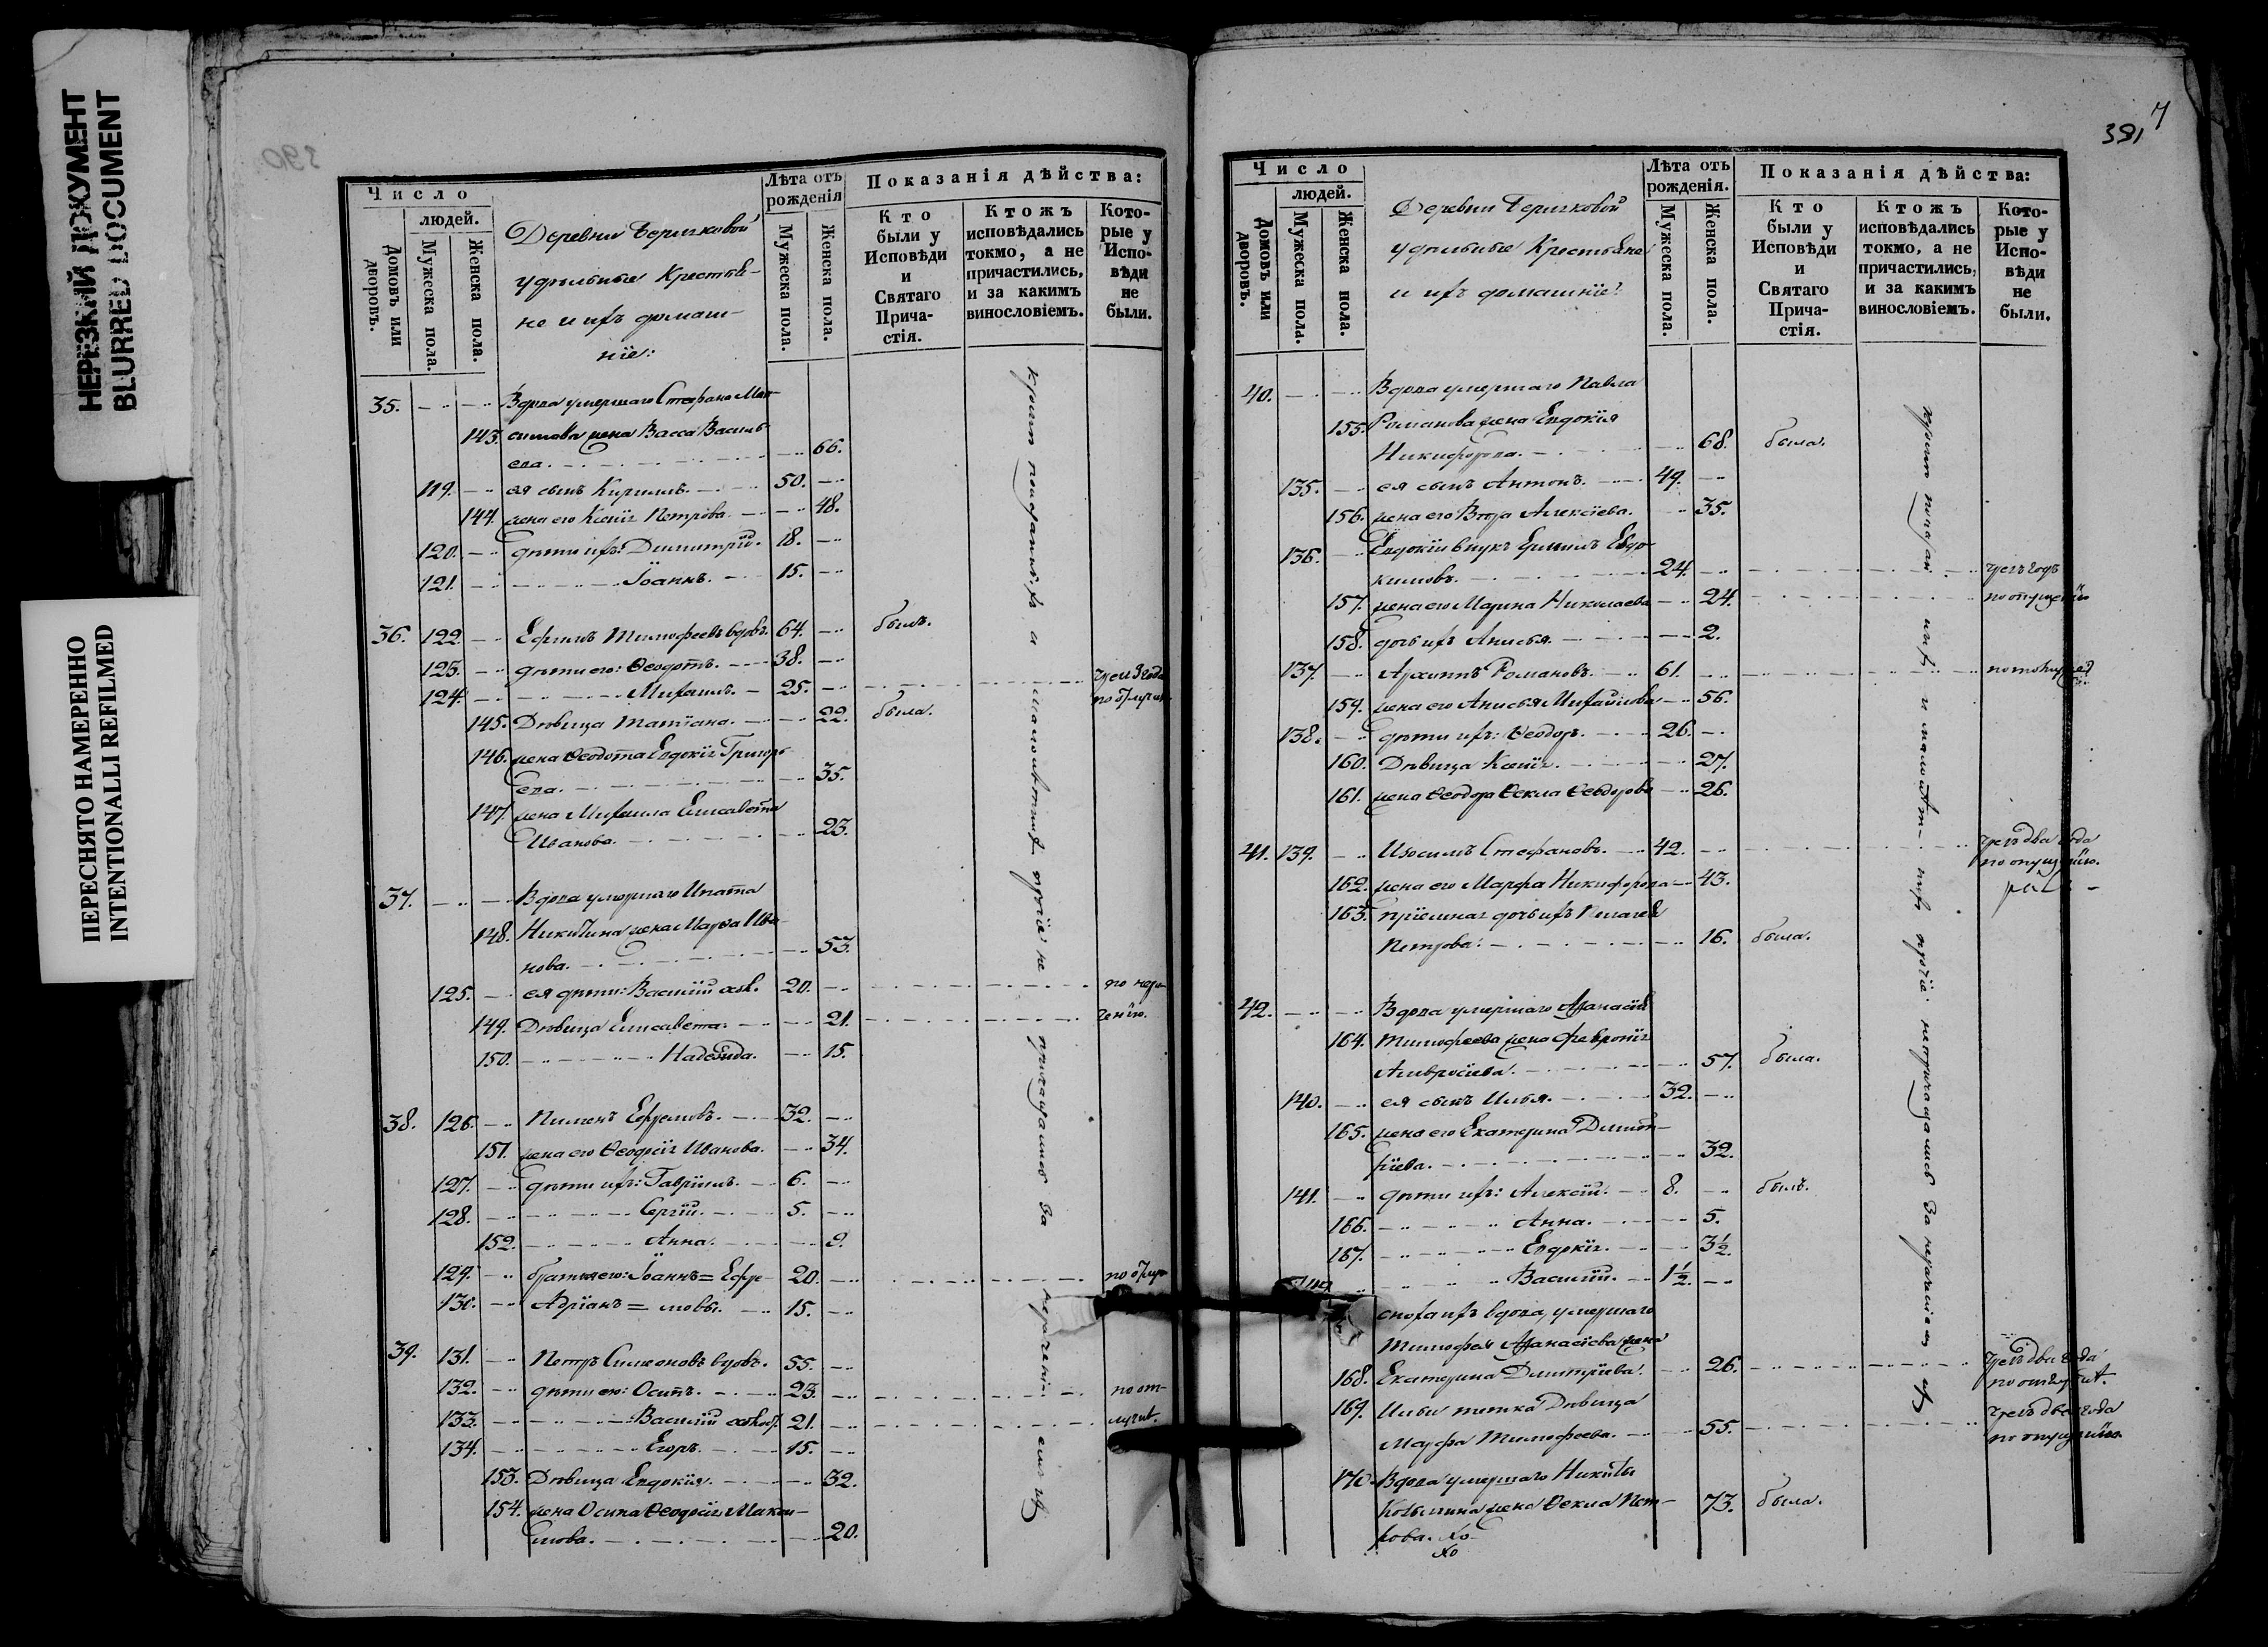 НЕРЕЗКИЙ ДОКУМЕНТ
BLURRED DOCUMENT
ПЕРЕСНЯТО НАМЕРЕННО
INTENTIONALLI REFILMED
390
Число
людей.
Домовъ или дворовъ.
Мужеска пола.
Женска пола.
Деревни
удѣльные Крестья-
не и ихъ домаш-
ніе:
Лѣта отъ рожденія
Мужеска пола.
Женска пола.
Показанія дѣйства:
Кто были у Исповѣди и Святаго Прича-стія.
Ктожъ исповѣдались токмо, а не причастились, и за какимъ винословіемъ.
Кото-рые у Испо-вѣди не были.
35. Вдова умершаго Стефана Мак-
143. симова жена Васса Василь-
ева. 66.
119. ея сынъ Кириллъ. 50.
144. жена его Ксенія Петрова. 48.
120. дѣти ихъ: Димитрій. 18.
121. Іоаннъ. 15.
36. 122. Ефимъ Тимофеевъ вдовъ. 64. былъ.
123. дѣти его: Ѳеодотъ. 38.
124. Михаилъ. 25.
145. Дѣвица Татіана. 22. была.
146. жена Ѳеодота Евдокія Григорь-
ева. 35.
147. жена Михаила Елисавета
Иванова. 23.
37. Вдова умершаго Ипата
148. Никитина жена Марѳа Ива-
нова. 53.
125. ея дѣти: Василій 20.
149. Дѣвица Елисавета. 21.
150. Надежда. 15.
38. 126. Пименъ Ефремовъ. 32.
151. жена его Ѳеодосія Иванова. 34.
127. дѣти ихъ: Гавріилъ. 6.
128. Сергій. 5.
152. Анна. 9.
129. братья его: Іоаннъ = Ефре- 20.
130. Адріанъ = мовы. 15.
39. 131. Петръ Симеоновъ вдовъ. 55.
132. дѣти его: Осипъ. 23. по от-
133. Василій 21. лучк.
134. Егоръ. 15.
153. Дѣвица Евдокія. 32.
154. жена Осипа Ѳеодосія Макси-
мова. 20.
391
7
Число
людей.
Домовъ или дворовъ.
Мужеска пола.
Женска пола.
Деревни
удѣльные Крестьяне
и ихъ домашніе:
Лѣта отъ рожденія.
Мужеска пола.
Женска пола.
Показанія дѣйства:
Кто были у Исповѣди и Святаго Прича-стія.
Ктожъ исповѣдались токмо, а не причастились, и за какимъ винословіемъ.
Кото-рые у Испо-вѣди не были.
40. Вдова умершаго Павла
155. Романова жена Евдокія
Никифорова. 68. была.
135. ея сынъ Антонъ. 49.
156. жена его Алексіева. 35.
136. Евдокіи внукъ Евдо-
кимовъ. 24.
157. жена его Марина Николаева 24. по опущенію
158. дочь ихъ Анисья. 2.
137. Архиппъ Романовъ. 61.
159. жена его Анисья Михайлова 56.
138. дѣти ихъ: Ѳеодоръ. 26.
160. Дѣвица Ксенія. 27.
161. жена Ѳеодора Ѳекла Ѳеодорова 26.
41. 139. Изосимъ Стефановъ. 42. два года
по опущенію.
162. жена его Марфа Никифорова 43.
163. пріемная дочь ихъ Пелагея
Петрова. 16. была.
42. Вдова умершаго Аѳанасія
164. Тимофеева жена Февронія
Амвросіева. 57. была.
140. ея сынъ Илья. 32.
165. жена его Екатерина Димит-
ріева. 32.
141. дѣти ихъ: Алексій. 8. былъ.
166. Анна. 5.
167. Евдокія. 3½.
Василій. 1½.
сноха ихъ вдова, умершаго
Тимофея Аѳанасіева жена
168. Екатерина Димитріева. 26. два года
169. Ильи тетка Дѣвица
Марфа Тимофеева. 55. два года
по опущенію
170. Вдова умершаго Никиты
жена Ѳекла Пет- 73. была.
рова.